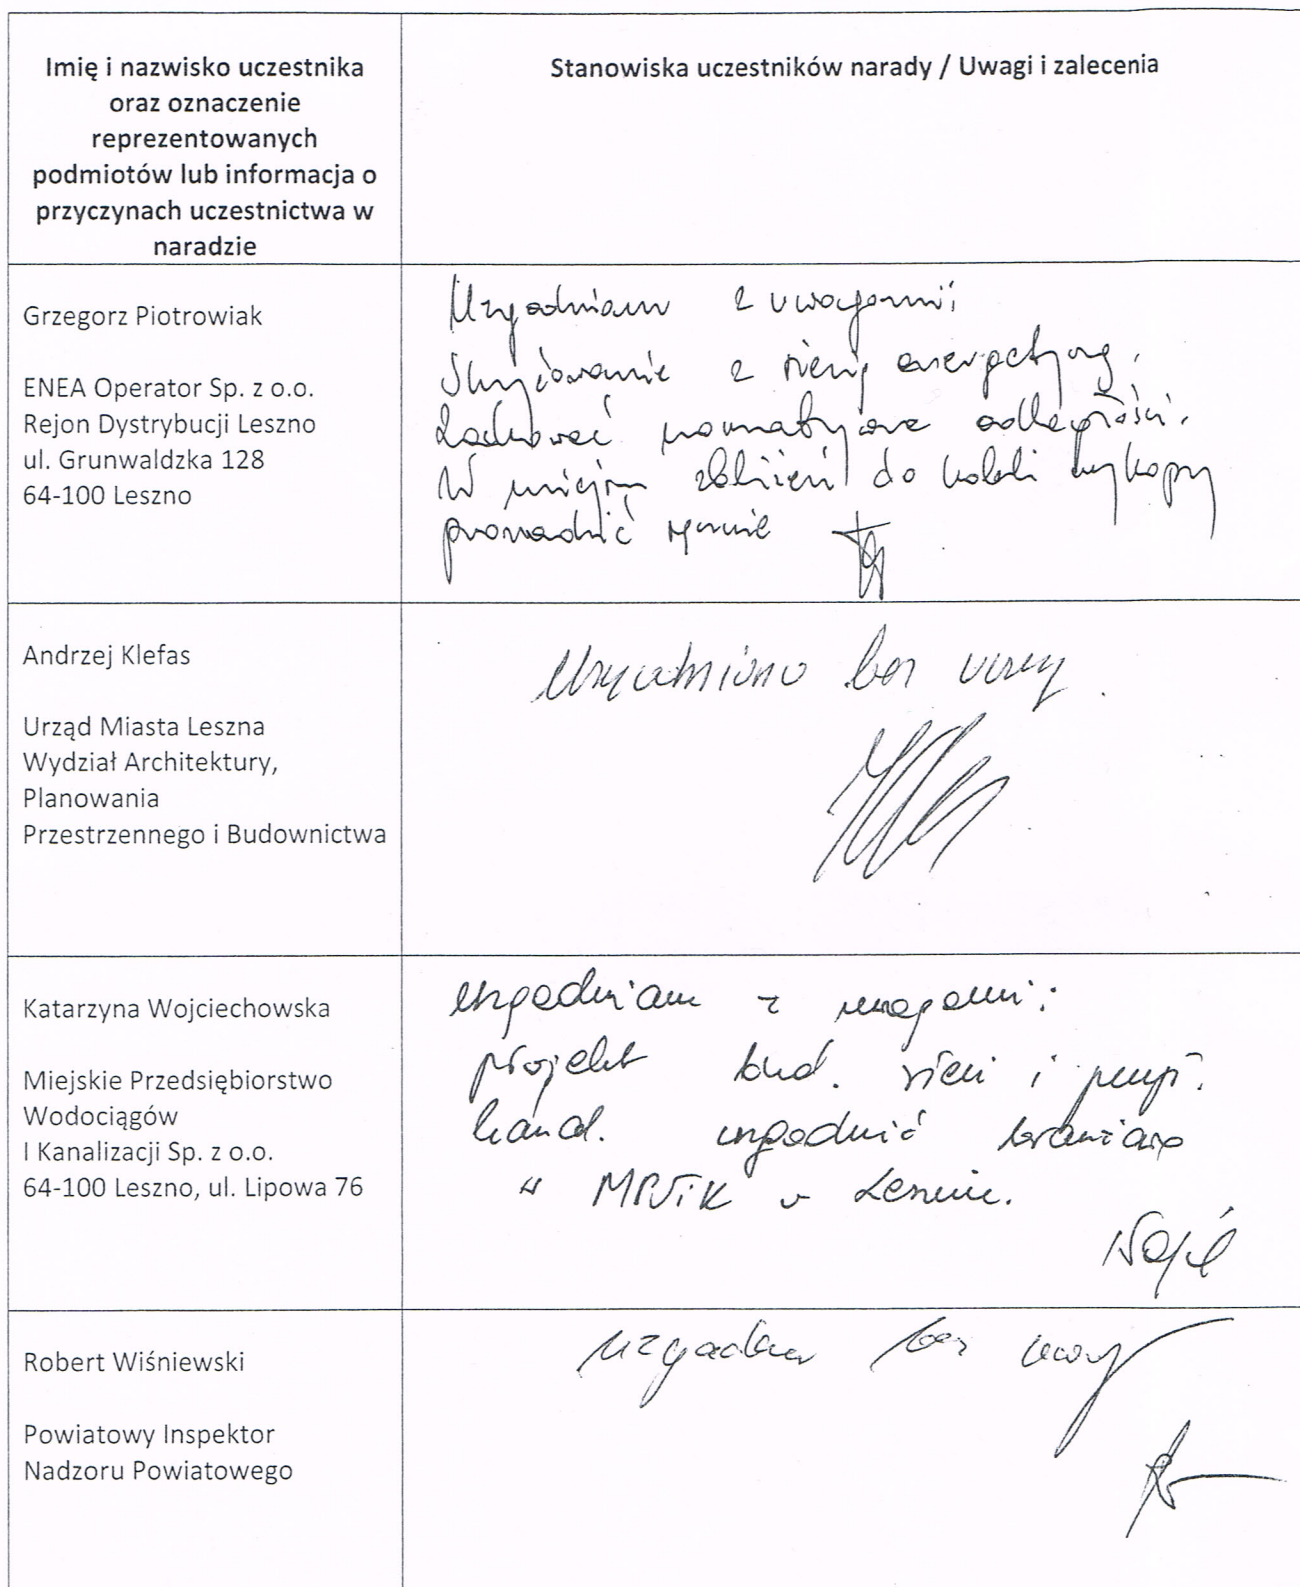 Imię i nazwisko uczestnika
oraz oznaczenie
reprezentowanych
podmiotów lub informacja o
przyczynach uczestnictwa w
naradzie
Stanowiska uczestników narady / Uwagi i zalecenia
Grzegorz Piotrowiak
ENEA Operator Sp. z o.o.
Rejon Dystrybucji Leszno
ul. Grunwaldzka 128
64-100 Leszno
Uzgadniam z uwagami;
Skrzyżowanie z siecią energetyczną.
Zachować normatywne odległości.
W miejscu zbliżeń do kabli wykopy
prowadzić ręcznie
Andrzej Klefas
Urząd Miasta Leszna
Wydział Architektury,
Planowania
Przestrzennego i Budownictwa
Uzgodniono bez uwag.
Katarzyna Wojciechowska
Miejskie Przedsiębiorstwo
Wodociągów
I Kanalizacji Sp. z o.o.
64-100 Leszno, ul. Lipowa 76
Uzgadniam z uwagami:
projekt bud. sieci i przył.
kanal. uzgodnić branżowo
w MPWiK w Lesznie.
Robert Wiśniewski
Powiatowy Inspektor
Nadzoru Powiatowego
uzgadniam bez uwag